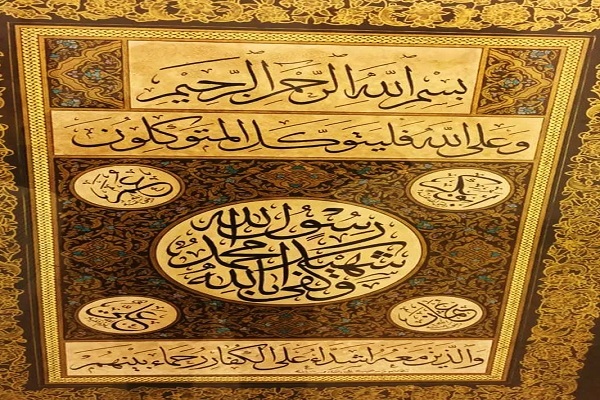 بسم الله الرحمن الرحيم
وعلى الله فليتوكل المتوكلون
ابوبكر
عمر
رسول الله
شهيدا محمد
وكفى بالله
عثمان
علي
والذين معه اشداء على الكفار رحماء بينهم